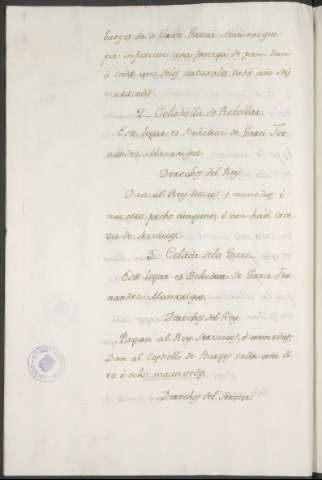 burgos da a Garci Garcia Manrrique
por infurcion una fanega de pan dan
a cada uno delos naturales cada año seis
maravedis.
2_ Celadilla de Rebollar
Este logar es Behetria de Garci Fer
nandez Manrrique.
Derechos del Rey.
Dan al Rey servicios, e monedas, e
non otro pecho ninguno, e non han
de servicios.
3_ Celada dela Torre.
Este logar es Behetria de Garci Fer
nandez Manrrique.
Derechos del Rey.
Pagan al Rey Servicios, e monedas,
Dan al Castillo de Burgos cada año di
ez e ocho maravedis.
Derechos del Señor.